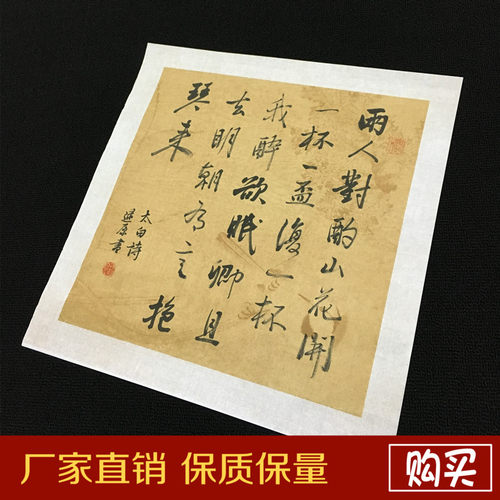 兩人對酌山花開
一杯一盃復一杯
我醉欲眠卿且
去明朝有意抱
琴来
太白詩
書
厂家直销 保质保量
购买